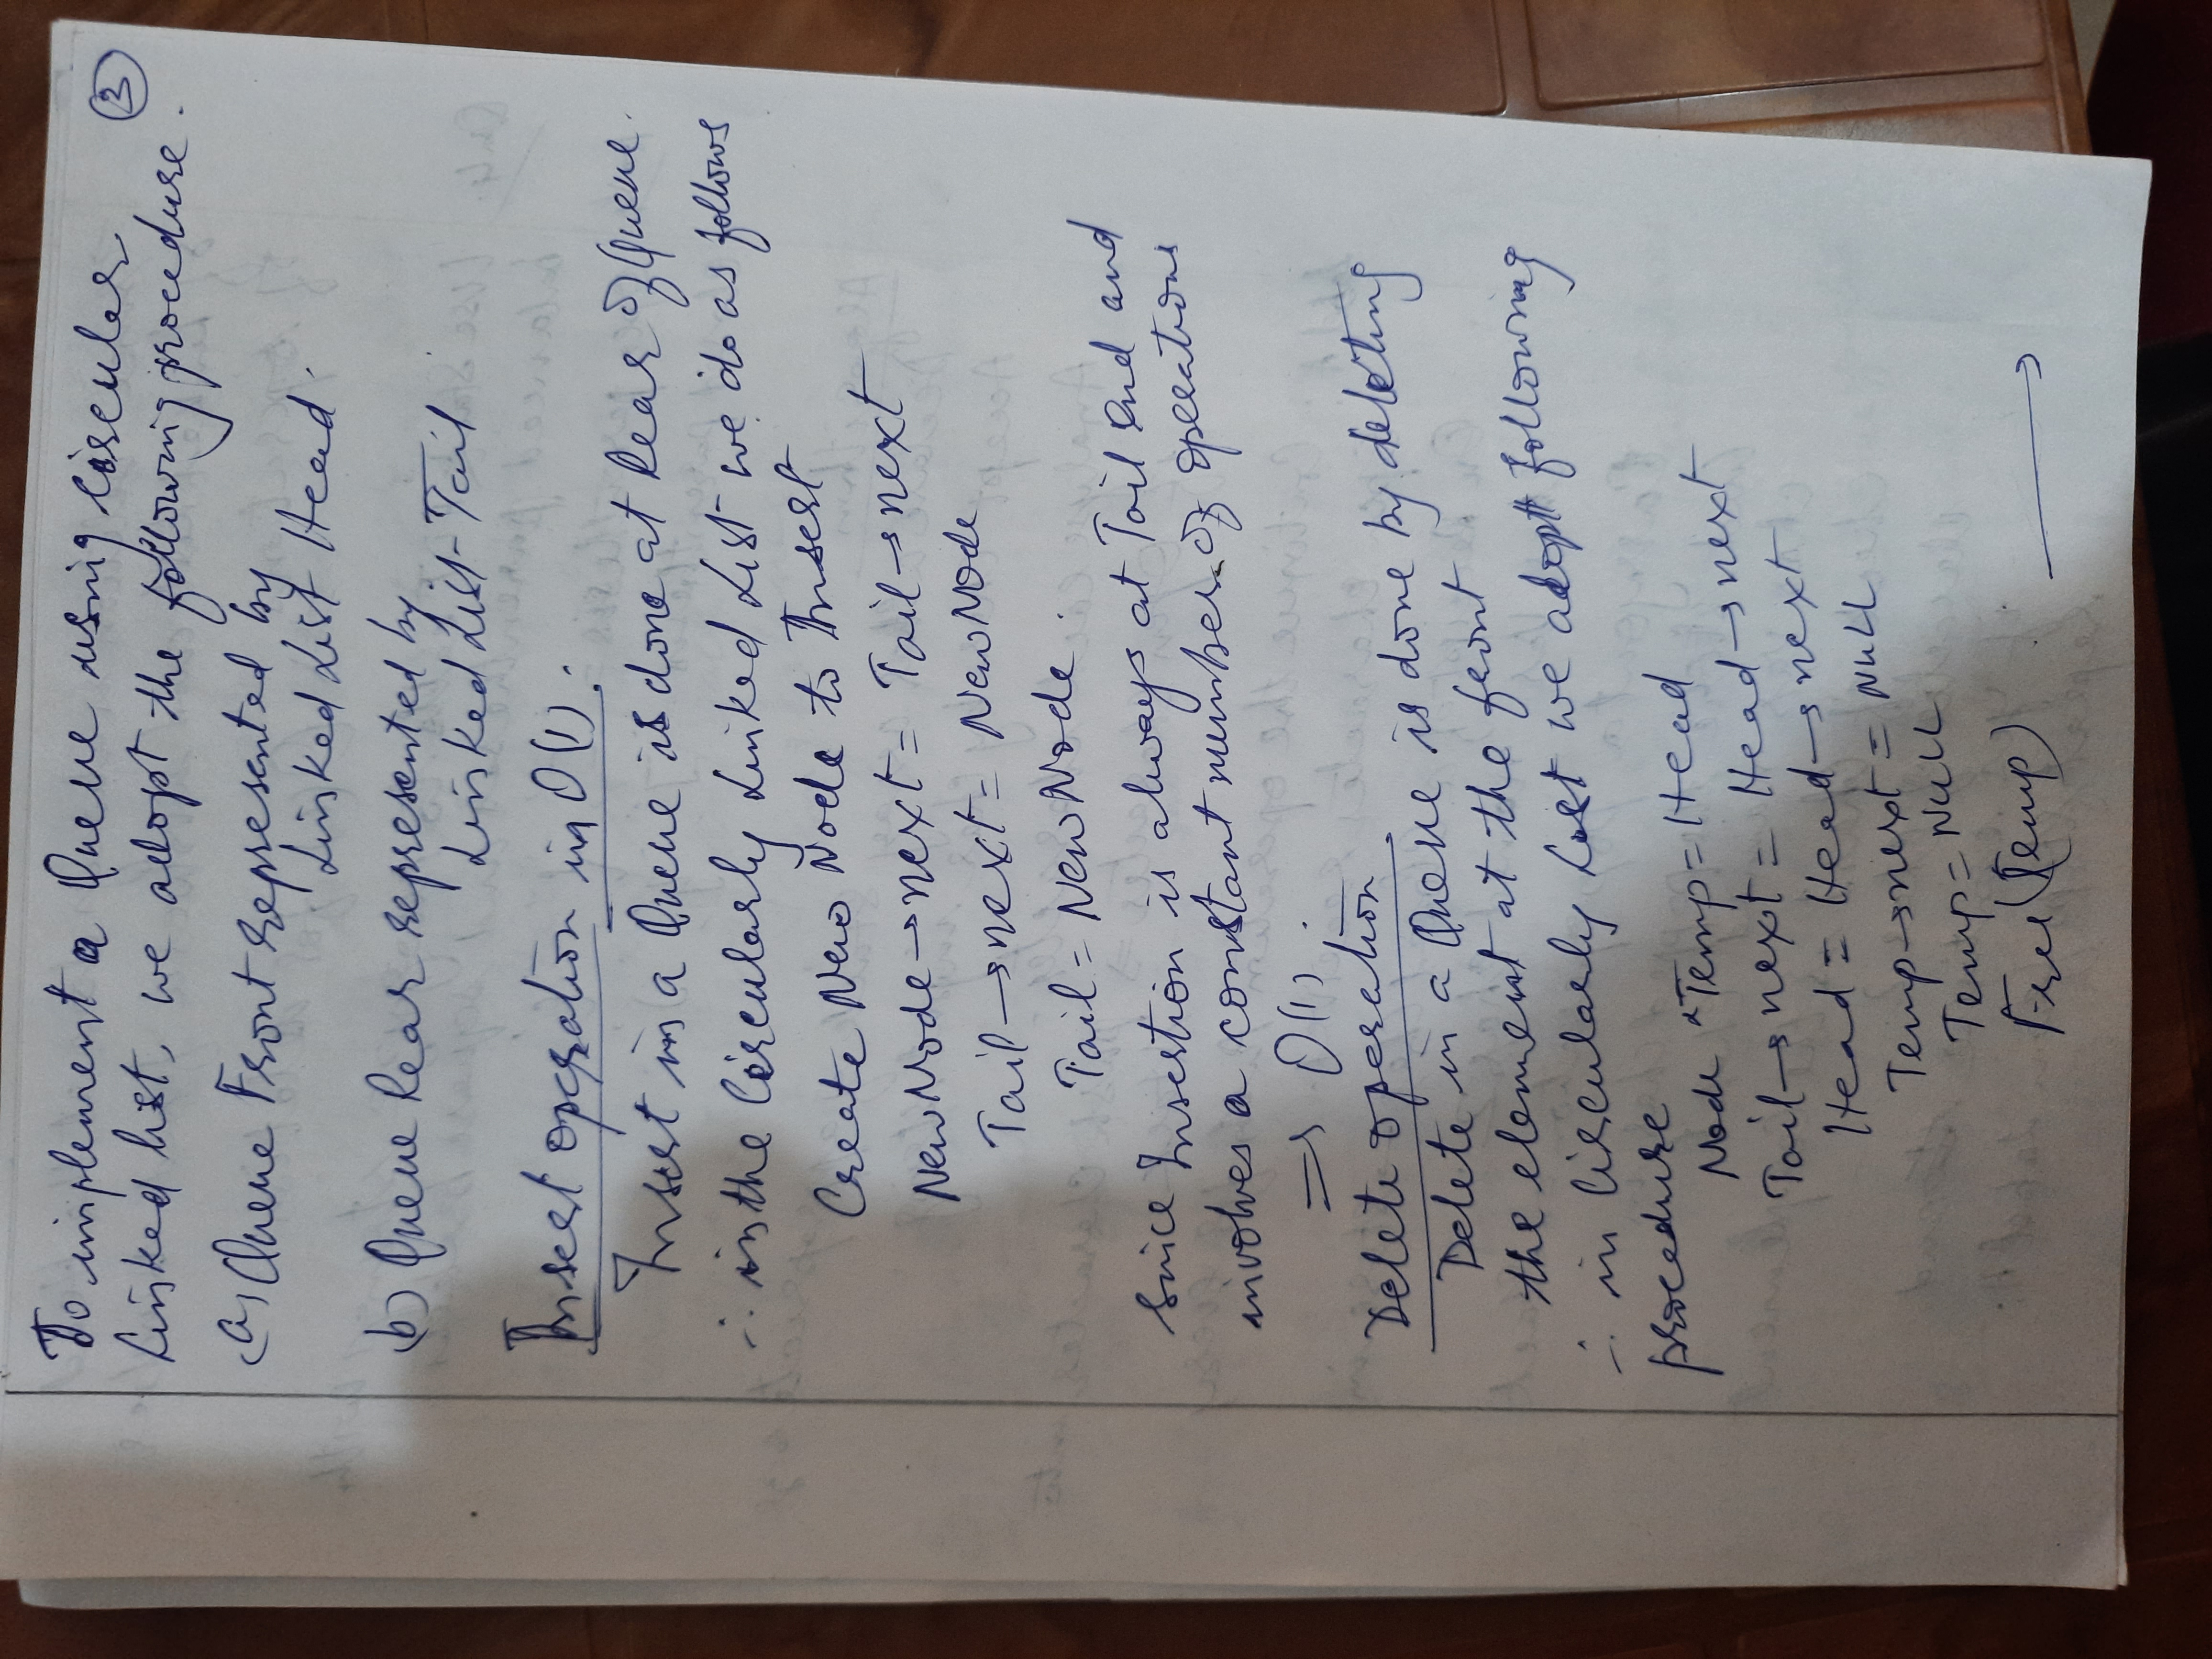 To implement a Queue using Circular
3
Linked list, we adopt the following procedure.
(a) Queue Front represented by
Linked List Head.
(b) Queue Rear represented by
Linked List Tail
Insert operation in O(1).
Insert in a Queue is done at Rear of Queue.
∴ in the Circularly Linked List we do as follows
Create New Node to Insert
NewNode→next = Tail→next
Tail→next = NewNode
Tail = NewNode.
Since Insertion is always at Tail End and
involves a constant number of operations
⇒ O(1).
Delete operation
Delete in a Queue is done by deleting
the element at the front
∴ in Circularly List we adopt following
procedure
Node *Temp = Head
Tail→next = Head→next
Head = Head→next
Temp→next = NULL
Temp = NULL
Free(Temp)
→